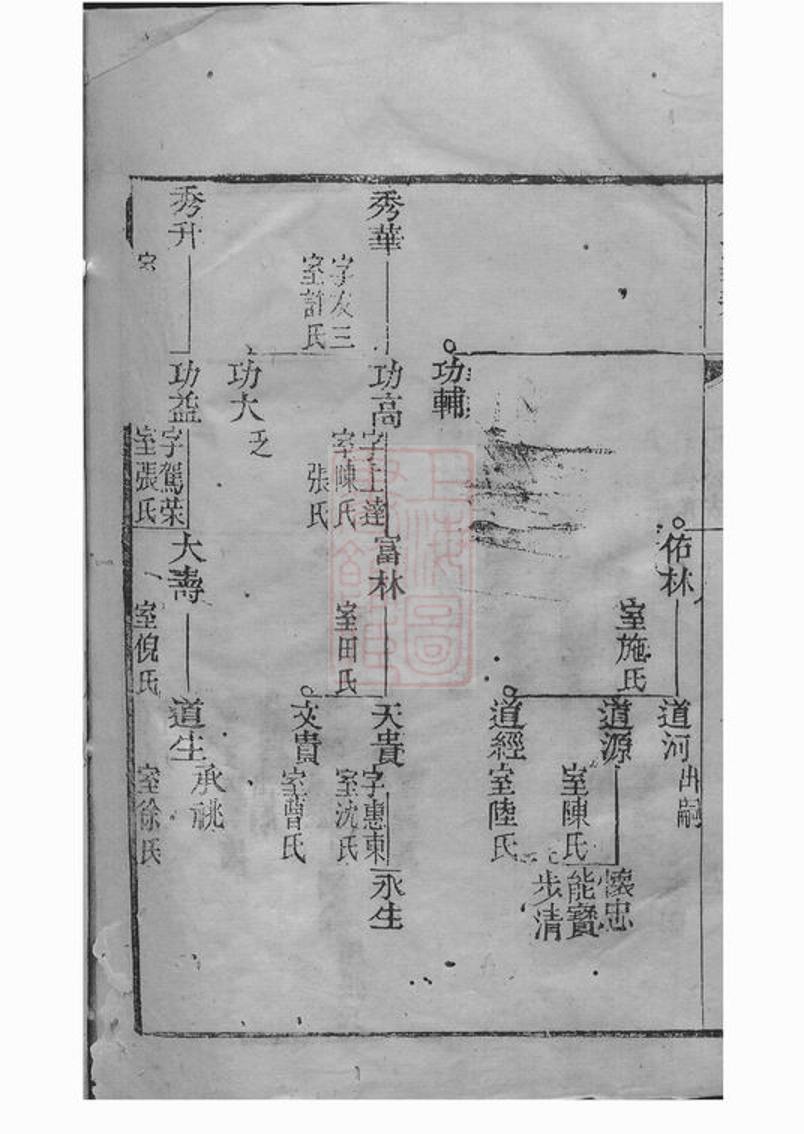 佑林
室施氏
道河
出嗣
道源
室陳氏
懷忠
能寶
步清
道經
室陸氏
功輔
秀華
字友三
室許氏
功高
字上達
室陳氏
張氏
富林
室田氏
天貴
字惠東
室沈氏
永生
文貴
室曹氏
功大
秀升
室
功益
字駕榮
室張氏
大壽
室倪氏
道生
承祧
室徐氏
上海圖